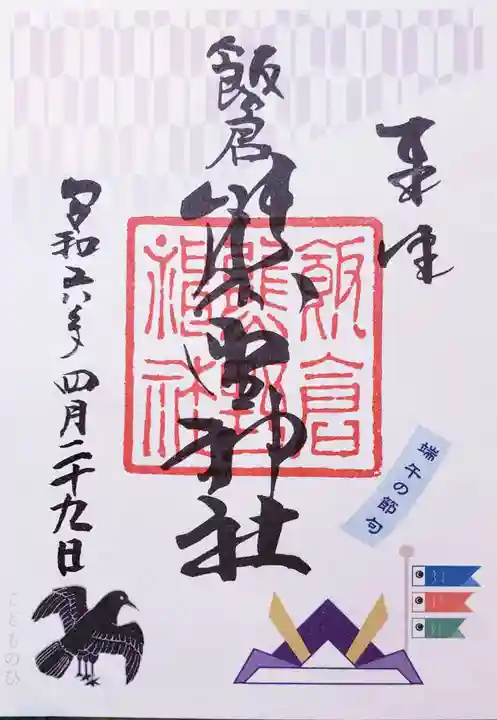 奉拝
飯倉
熊野神社
飯倉
熊野
神社
令和六年四月二十九日
端午の節句
こどものひ